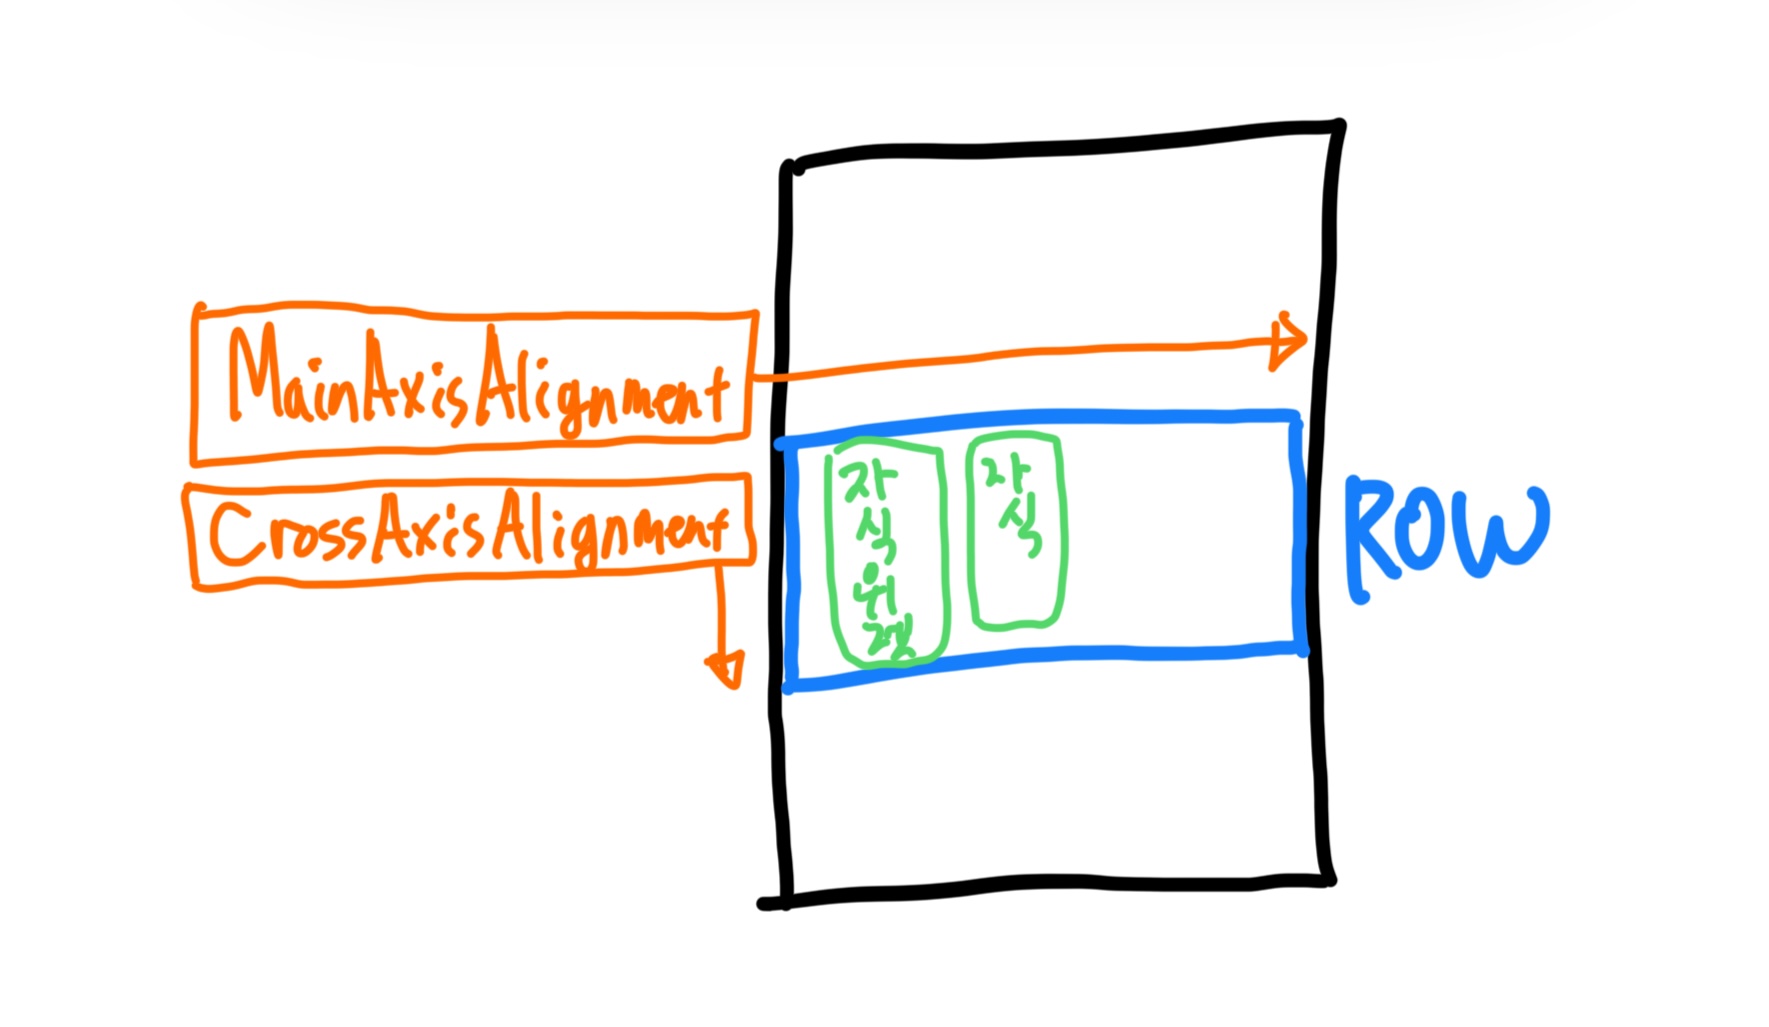 MainAxisAlignment
CrossAxisAlignment
자
식
위
젯
자
식
ROW